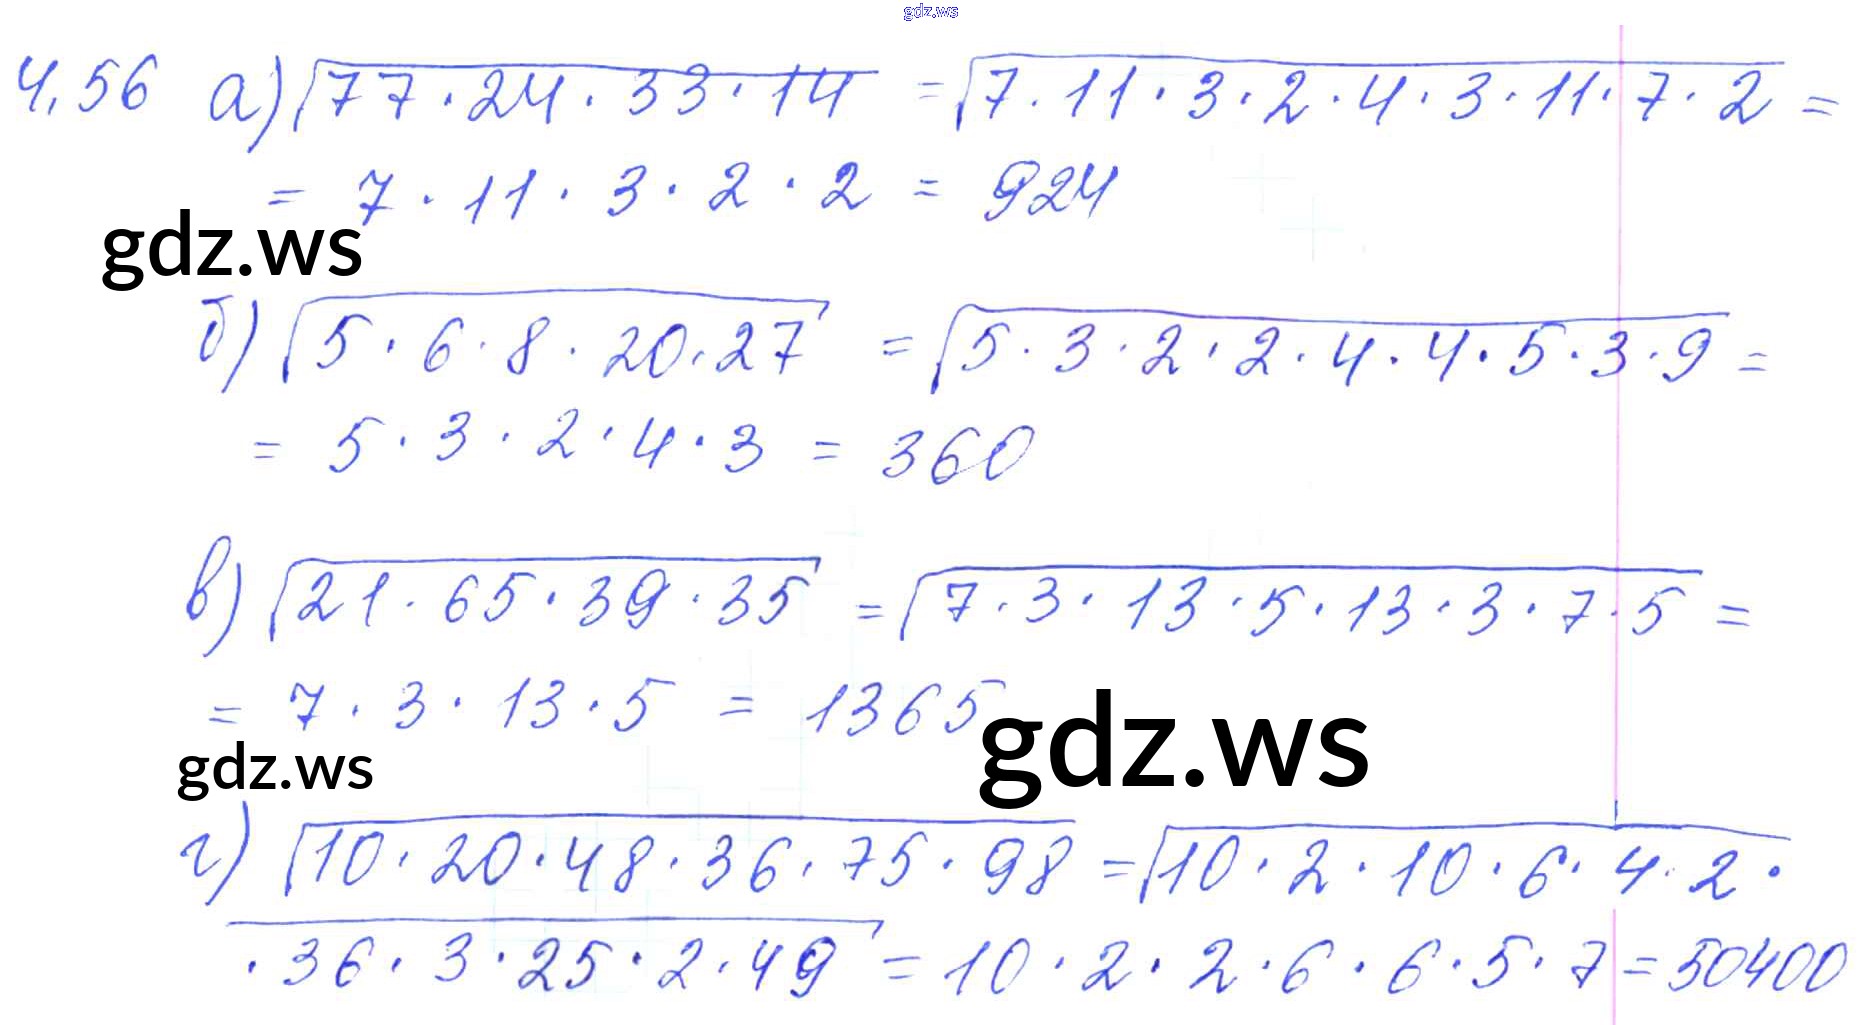 gdz.ws
4.56 а) √77·24·33·14 = √7·11·3·2·4·3·11·7·2 =
= 7·11·3·2·2 = 924
gdz.ws
б) √5·6·8·20·27 = √5·3·2·2·4·4·5·3·9 =
= 5·3·2·4·3 = 360
в) √21·65·39·35 = √7·3·13·5·13·3·7·5 =
= 7·3·13·5 = 1365
gdz.ws
gdz.ws
г) √10·20·48·36·75·98 = √10·2·10·6·4·2·
·36·3·25·2·49 = 10·2·2·6·6·5·7 = 50400